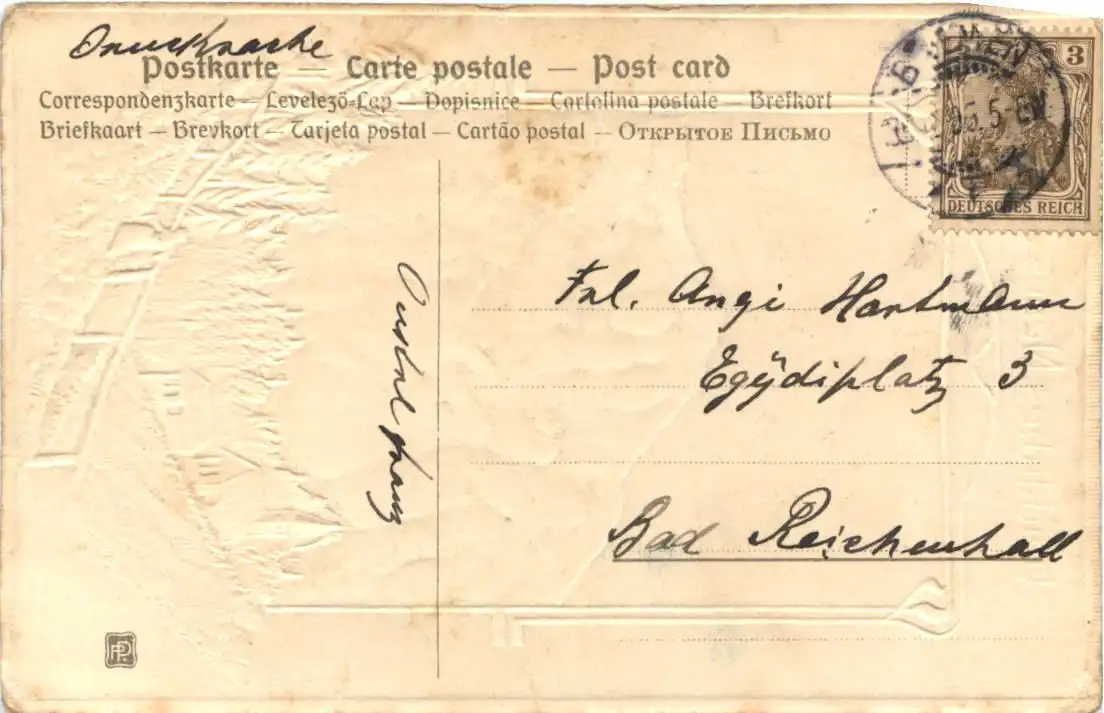 Drucksache
Postkarte — Carte postale — Post card
Correspondenzkarte — Levelező-Lap — Dopisnice — Cartolina postale — Brefkort
Briefkaart — Brevkort — Tarjeta postal — Cartão postal — Открытое Письмо
BREMEN
05.5-6N
3
DEUTSCHES REICH
Frl. Angi Hartmann
Egÿdiplatz 3
Bad Reichenhall
PP